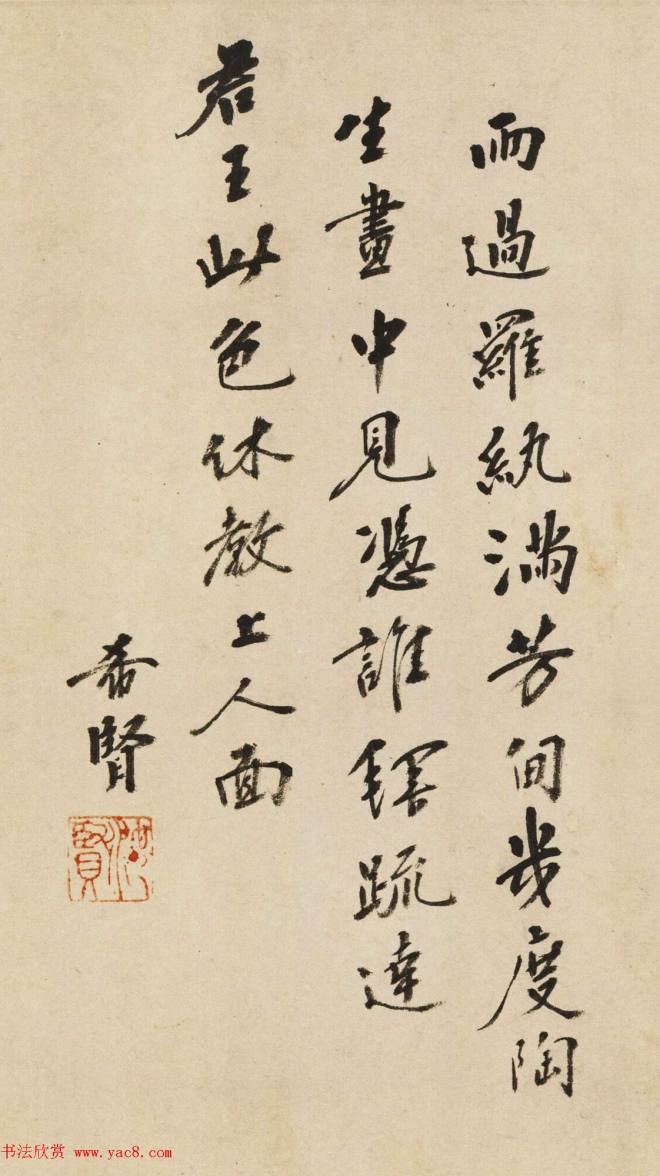 雨過羅紈滿芳甸幾度陶
生畫中見憑誰疏達
君王此色休教上人面
希賢
书法欣赏 www.yac8.com